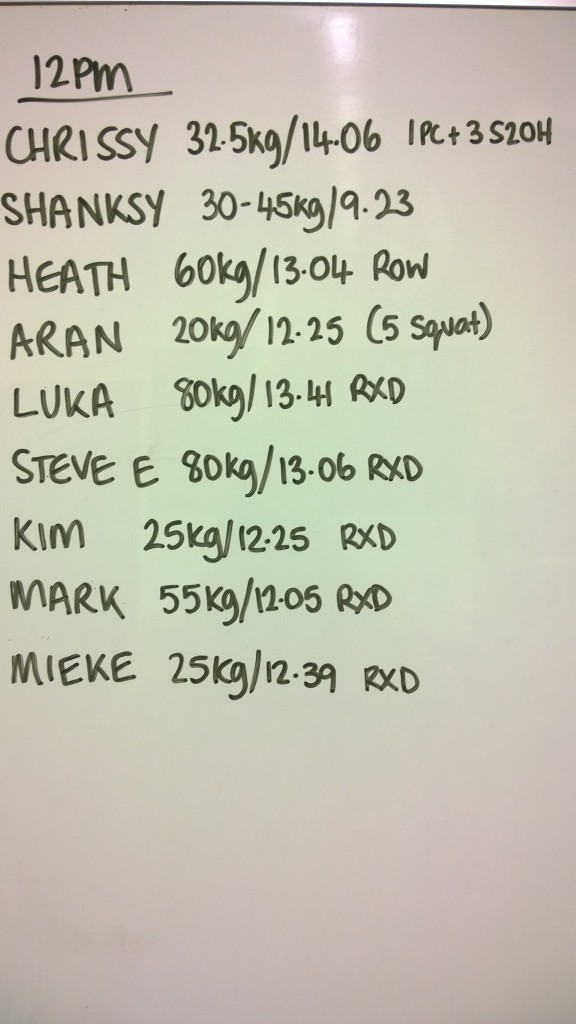 12PM
CHRISSY 32.5kg/14.06 1PC+3 S2OH
SHANKSY 30-45kg/9.23
HEATH 60kg/13.04 ROW
ARAN 20kg/12.25 (5 squat)
LUKA 80kg/13.41 RXD
STEVE E 80kg/13.06 RXD
KIM 25kg/12.25 RXD
MARK 55kg/12.05 RXD
MIEKE 25kg/12.39 RXD